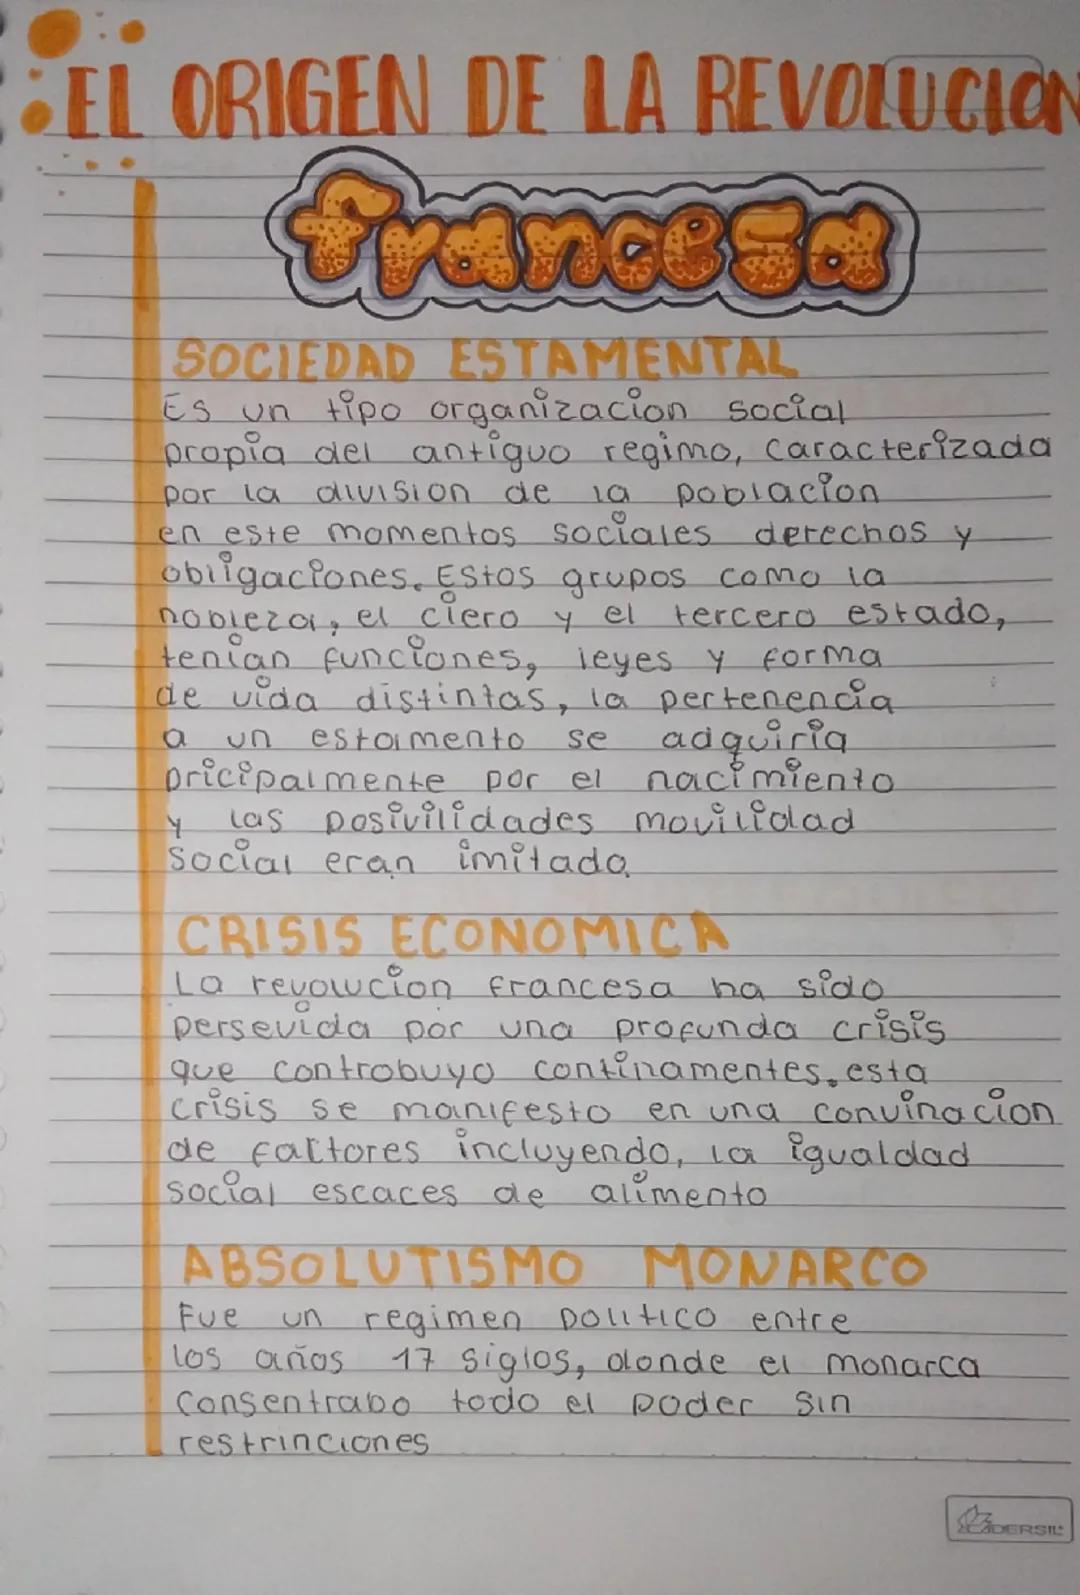 EL ORIGEN DE LA REVOLUCION
francesa
SOCIEDAD ESTAMENTAL
Es un tipo organizacion social
propia del antiguo regimo, caracterizada
por la division de la poblacion
en este momentos sociales derechos y
obligaciones. Estos grupos como la
nobleza, el clero y el tercero estado,
tenian funciones, leyes y forma
de vida distintas, la pertenencia
a un estamento se adquiria
pricipalmente por el nacimiento
y las posivilidades movilidad
social eran imitado.
CRISIS ECONOMICA
La revolucion francesa ha sido
persevida por una profunda crisis
que controbuyo continamentes. esta
crisis se manifesto en una convinacion
de factores incluyendo, la igualdad
social escaces de alimento
ABSOLUTISMO MONARCO
Fue un regimen politico entre
los años 17 siglos, donde el monarca
consentrabo todo el poder sin
restrinciones
CADERSIL